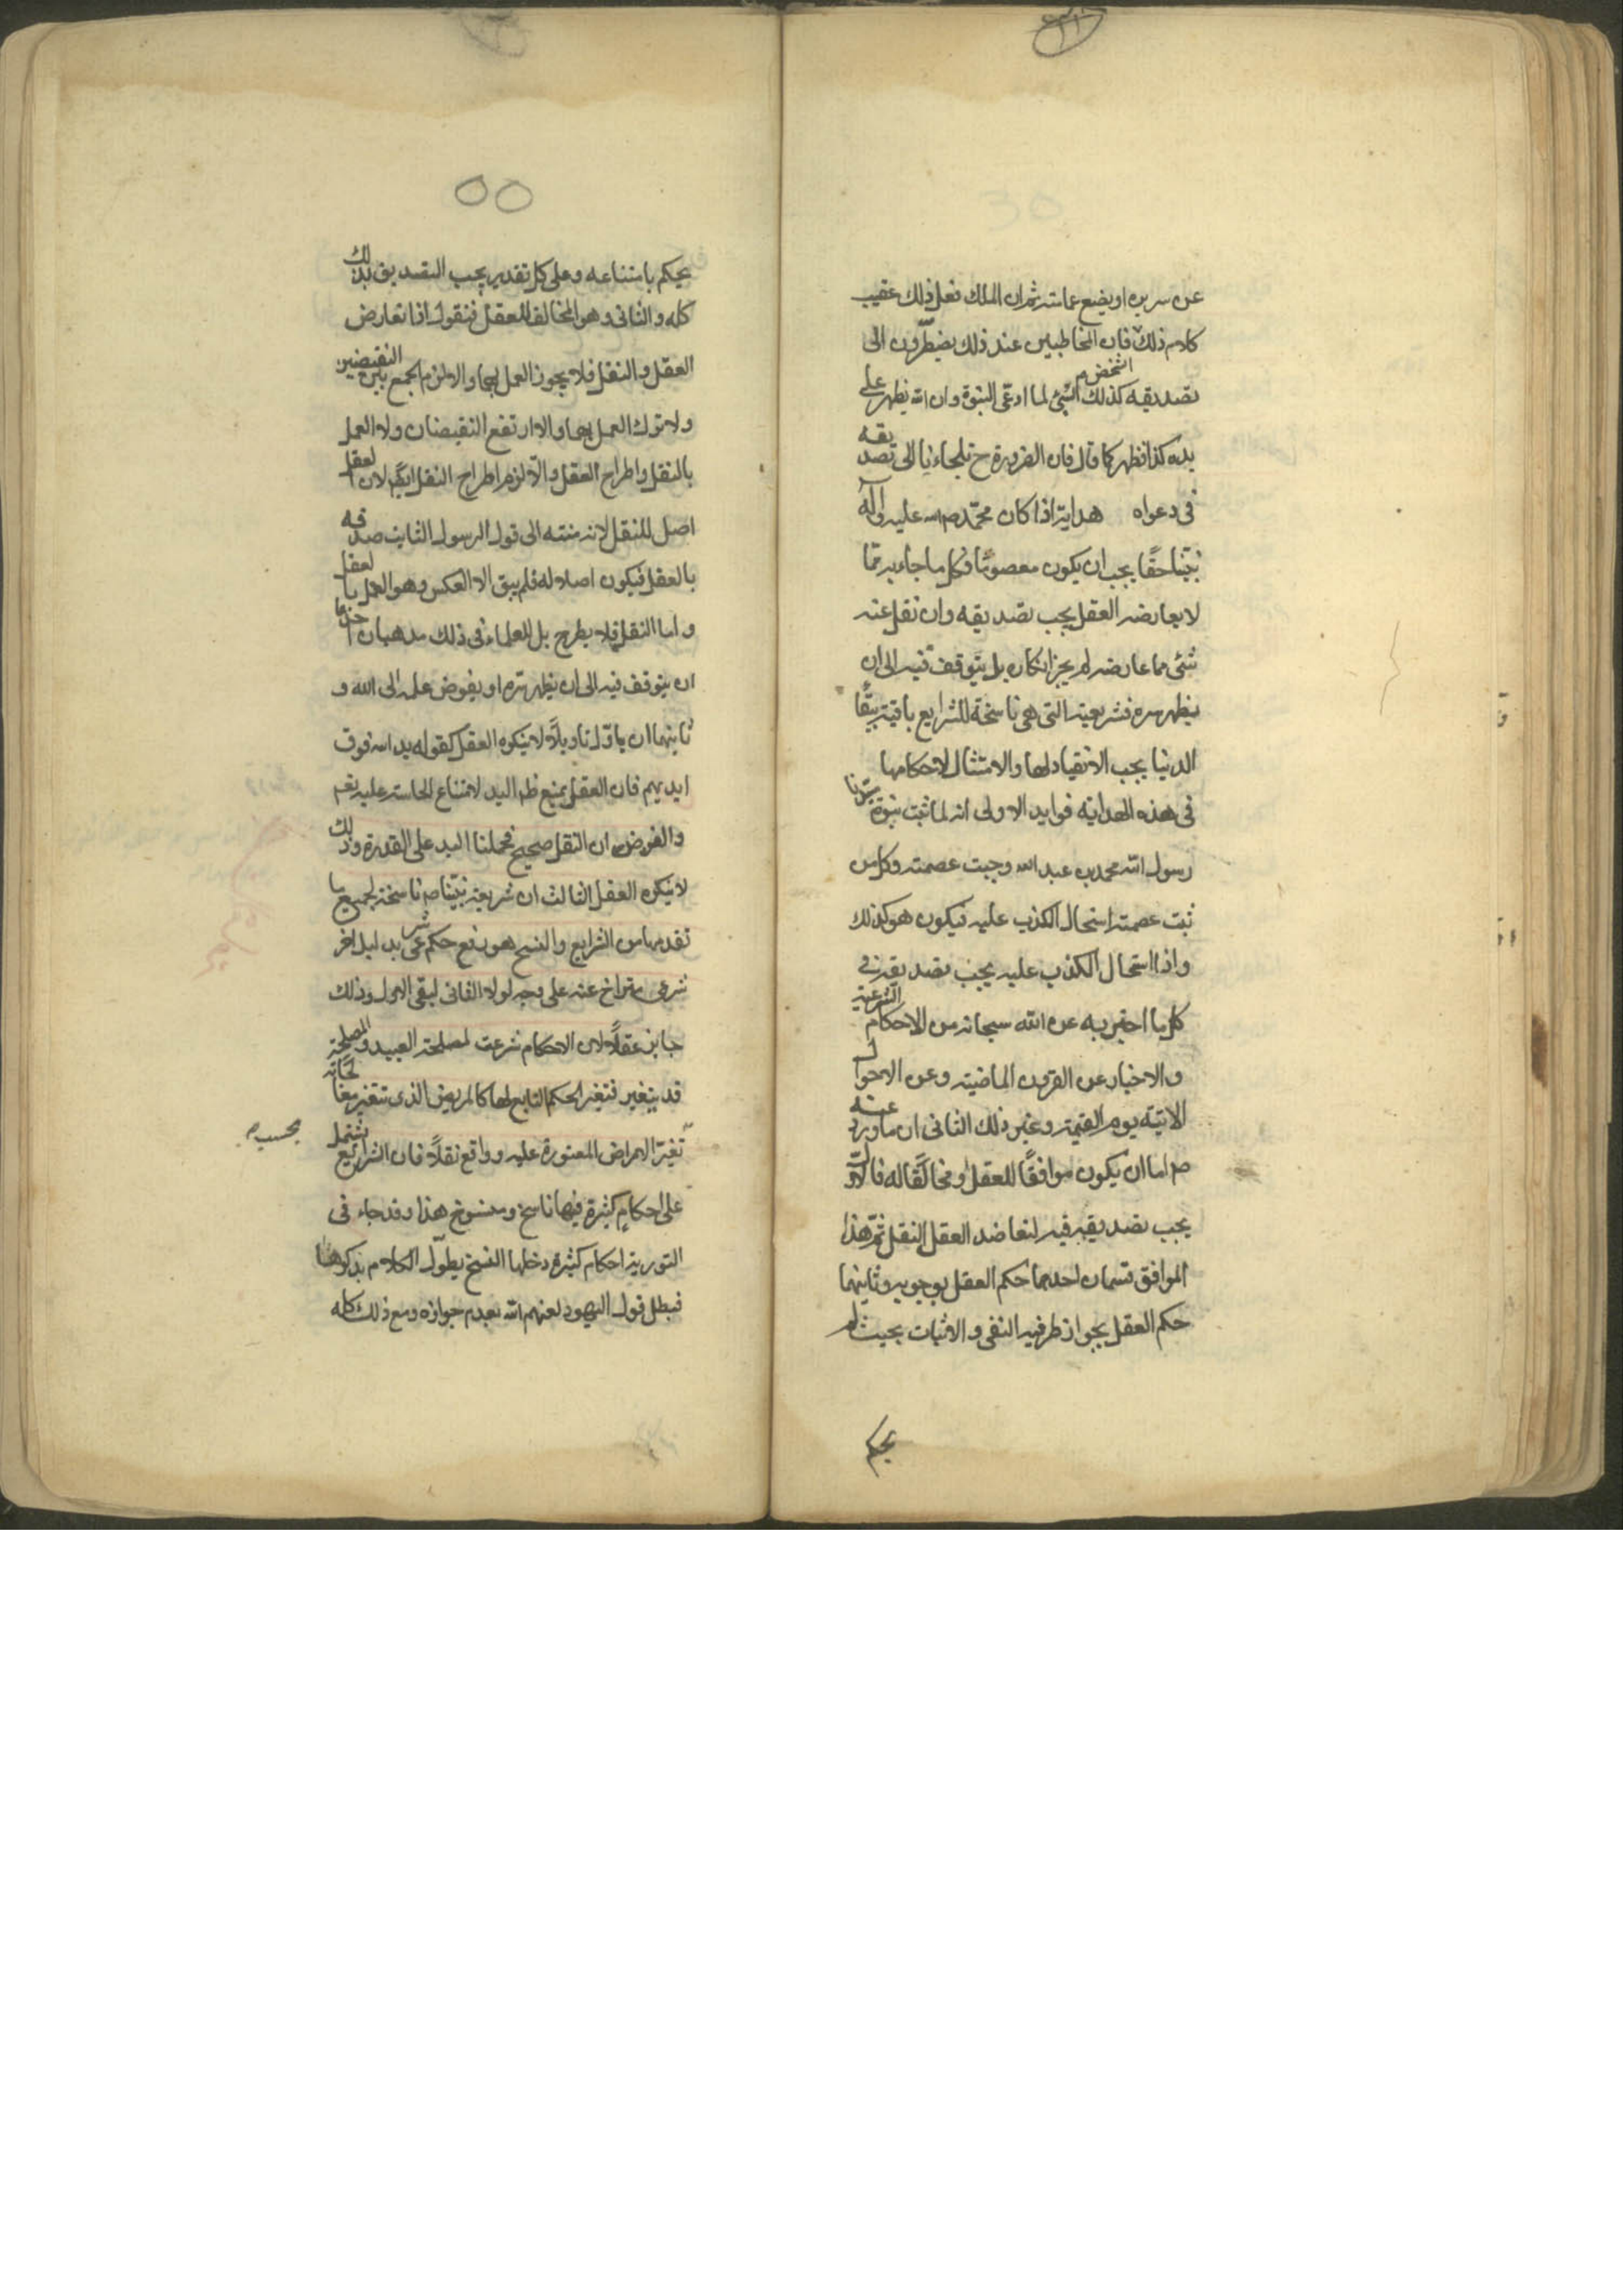 عن سريره او يضع عمامته ثم ان الملك فعل ذلك عقيب
كلام ذلك الشخص فان المخاطبين عند ذلك يضطرون الى
تصديقه كذلك النبى لما ادعى النبوة وان الله يظهر على
يده كذا فظهر كما قال فان الضرورة ح تلجاءنا الى تصديقه
فى دعواه هداية اذا كان محمد صلى الله عليه وآله
نبيّنا حقًا يجب ان يكون معصومًا وكل ما جاء به ممّا
لا يعارضه العقل يجب تصديقه وان نقل عنه
شئى مما عارضه لم يجز انكاره بل يتوقف فيه الى ان
يظهر سره فشريعته التى هى ناسخة للشرايع باقية ببقا
الدنيا يجب الانقياد لها والامتثال لاحكامها
فى هذه الهداية فوايد الاولى انه لما ثبت نبوة سيّدنا
رسول الله محمد بن عبد الله وجبت عصمته وكل من
ثبت عصمته استحال الكذب عليه فيكون هو كذلك
واذا استحال الكذب عليه يجب تصديقه فى
كل ما اخبر به عن الله سبحانه من الاحكام الشرعية
والاخبار عن القرون الماضية وعن الاحوال
الاتية يوم القيمة وغير ذلك الثانى ان ما ورد عنه
ص اما ان يكون موافقًا للعقل او مخالفًا له فالاوّل
يجب تصديقه فيه لتعاضد العقل النقل ثم هذا
الموافق قسمان احدهما حكم العقل بوجوبه وثانيهما
حكم العقل بجواز طرفيه النفى والاثبات بحيث لم
يحكم
٥٥
يحكم بامتناعه وعلى كل تقدير يجب التصديق بذلك
كله والثانى وهو المخالف للعقل فنقول اذا تعارض
العقل والنقل فلا يجوز العمل بهما والا لزم الجمع بين النقيضين
ولا ترك العمل بهما والا ارتفع النقيضان ولا العمل
بالنقل واطراح العقل والّا لزم اطراح النقل ايضًا لان العقل
اصل للنقل لانه منته الى قول الرسول الثابت صدقه
بالعقل فيكون اصلا له فلم يبق الا العكس وهو العمل بالعقل
واما النقل فلا يطرح بل للعلماء فى ذلك مذهبان احدهما
ان يتوقف فيه الى ان يظهر سره او يفوض علمه الى الله و
ثانيهما ان ياوّل تاويلًا لا ينكره العقل كقوله يد الله فوق
ايديهم فان العقل يمنع ظ اليد لامتناع الحاسة عليه تعم
والفرض ان النقل صحيح فحملنا اليد على القدرة وذلك
لا ينكره العقل الثالث ان شريعة نبيّنا ص ناسخة لجميع ما
تقدمها من الشرايع والنسخ هو رفع حكم شرعى بدليل اخر
شرعى متراخ عنه على وجه لولا الثانى لبقى الاول وذلك
جايز عقلًا لان الاحكام شرعت لمصلحة العبيد والمصلحة
قد يتغير فتغير الحكم التابع لها كالمريض الذى تتغير معالجاته
بحسب
تغيّر الامراض المعتورة عليه وواقع نقلًا فان الشرايع يشتمل
على احكام كثيرة فيها ناسخ ومنسوخ هذا وقد جاء فى
التورية احكام كثيرة دخلها النسخ يطوّل الكلام بذكرها
فبطل قول اليهود لعنهم الله بعدم جوازه ومع ذلك كله